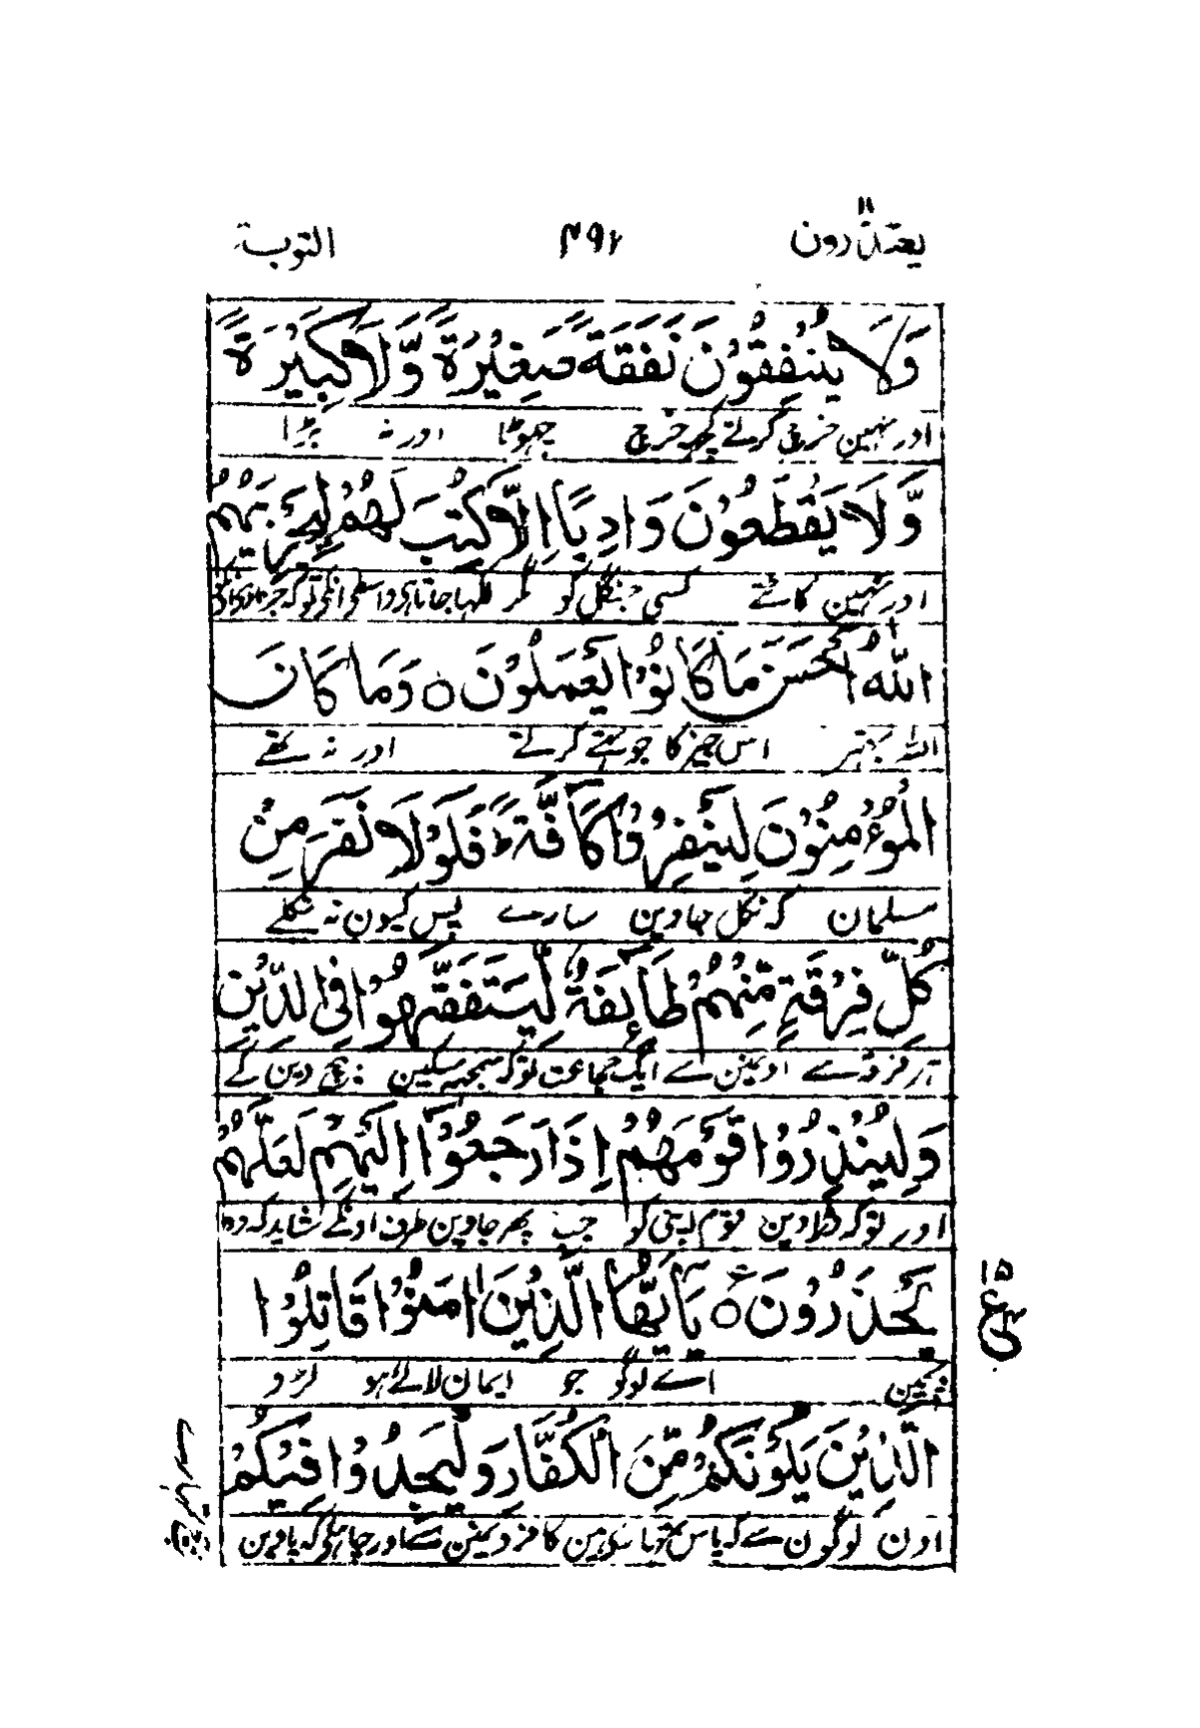 یعتذرون ۱۱ ۴۹۲ التوبة
وَلَا يُنْفِقُوْنَ نَفَقَةً صَغِيْرَةً وَّلَا كَبِيْرَةً
اور نہین خرچ کرتے کچھ خرچ چھوٹا اور نہ بڑا
وَّلَا يَقْطَعُوْنَ وَادِيًا اِلَّا كُتِبَ لَهُمْ لِيَجْزِيَهُمُ
اور نہین کاٹتے کسی جنگل کو مگر لکھا جاتا ہی واسطے انکے توکہ
اللّٰهُ اَحْسَنَ مَا كَانُوْا يَعْمَلُوْنَ ۝ وَمَا كَانَ
اللہ بہتر اس چیز کا جو تھے کرتے اور نہ تھے
الْمُؤْمِنُوْنَ لِيَنْفِرُوْا كَآفَّةً ؕ فَلَوْلَا نَفَرَ مِنْ
مسلمان کہ نکل جاوین سارے پس کیون نہ نکلے
كُلِّ فِرْقَةٍ مِّنْهُمْ طَآئِفَةٌ لِّيَتَفَقَّهُوْا فِى الدِّيْنِ
ہر فرقے سے ایک جماعت توکہ سمجھ سیکھین بیچ دین کے
وَلِيُنْذِرُوْا قَوْمَهُمْ اِذَا رَجَعُوْٓا اِلَيْهِمْ لَعَلَّهُمْ
اور توکہ ڈراوین قوم اپنی کو جب پھر جاوین طرف اونکے شاید کہ وہ
يَحْذَرُوْنَ ۝ يٰٓاَيُّهَا الَّذِيْنَ اٰمَنُوْا قَاتِلُوا
۱۵
ع
اے لوگو جو ایمان لائے ہو لڑو
الَّذِيْنَ يَلُوْنَكُمْ مِّنَ الْكُفَّارِ وَلْيَجِدُوْا فِيْكُمْ
اون لوگون سے کہ پاس تمہارے ہین کافرون مین سے اور چاہئے کہ پاوین